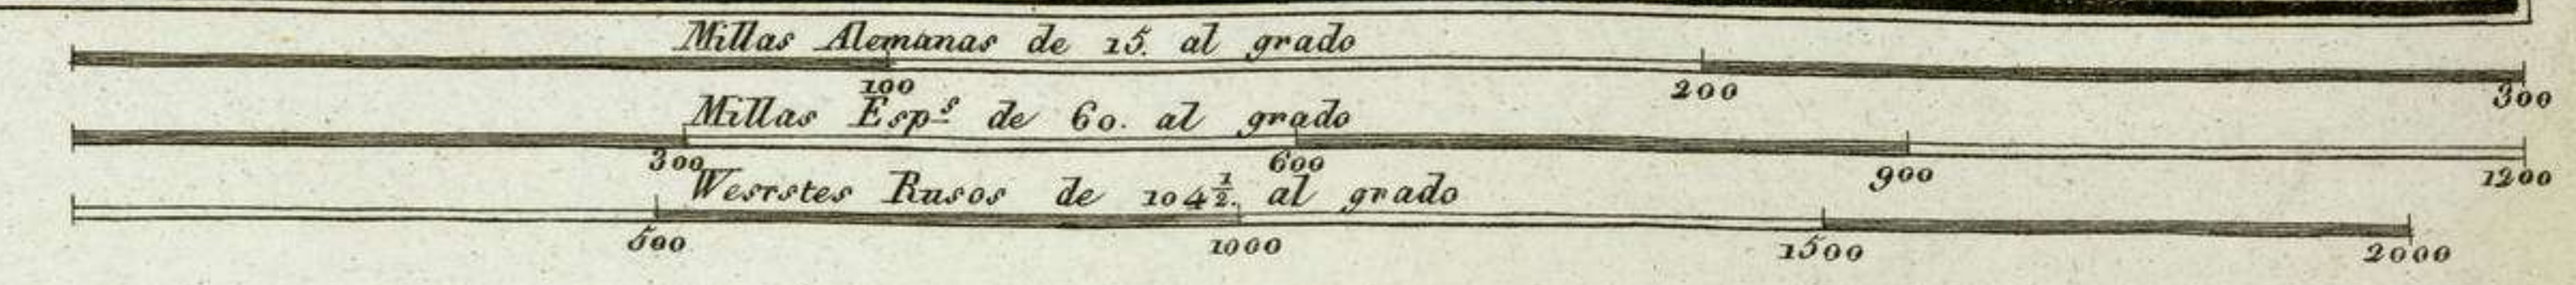 Millas Alemanas de 15. al grado
100 200 300
Millas Esp.s de 60. al grado
300 600 900 1200
Wesrstes Rusos de 104 1/2. al grado
500 1000 1500 2000